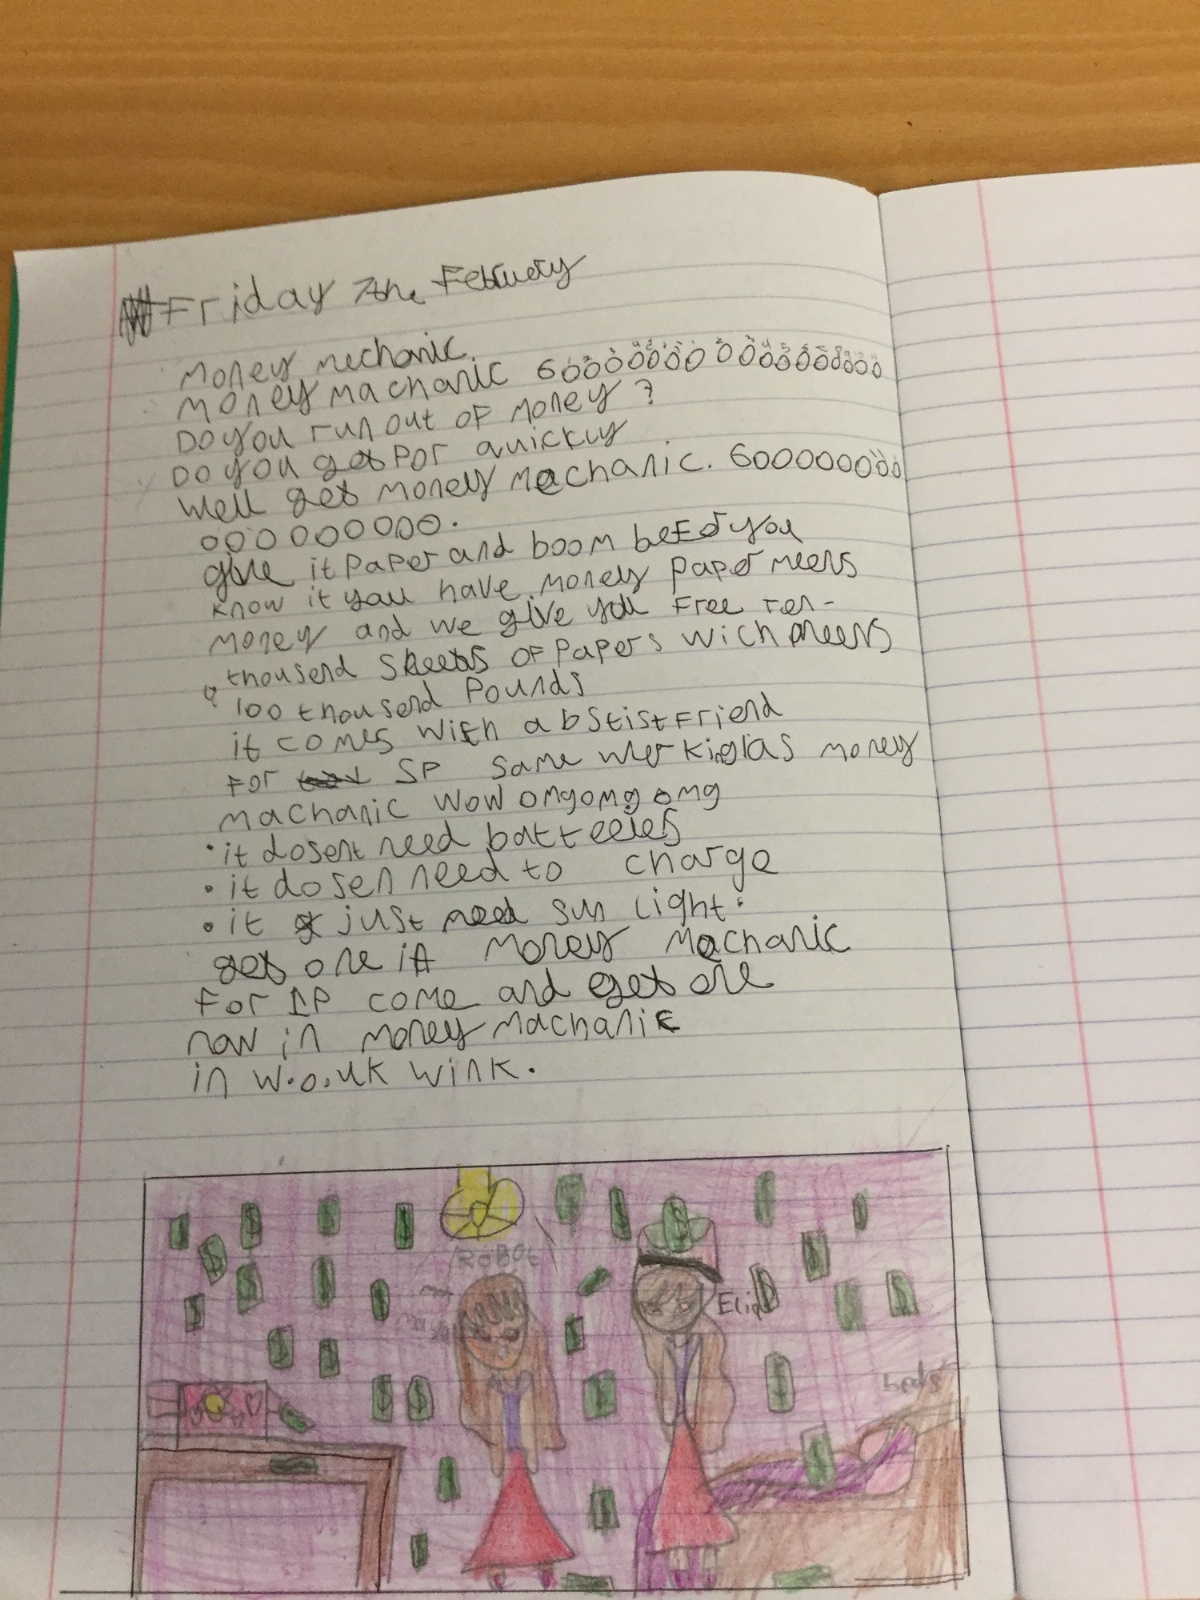 Friday 7the Februery
Money mechanic.
Money machanic 600000000000000000
Do you run out of money ?
Do you get por quickly
Well get money mechanic. 6000000000
000000000.
give it paper and boom befor you
know it you have money paper meens
money and we give you free ten-
thousend sheets of papers wich meens
100 thousend pounds
it comes with a bstist friend
for 5P same werkinglas money
machanic wow omgomg omg
• it dosent need batteeies
• it dosen need to charge
• it just need sun light.
get one if money machanic
for 1P come and get one
now in money machanic
in w.o.uk wink.
ROBOT
Elip
beds